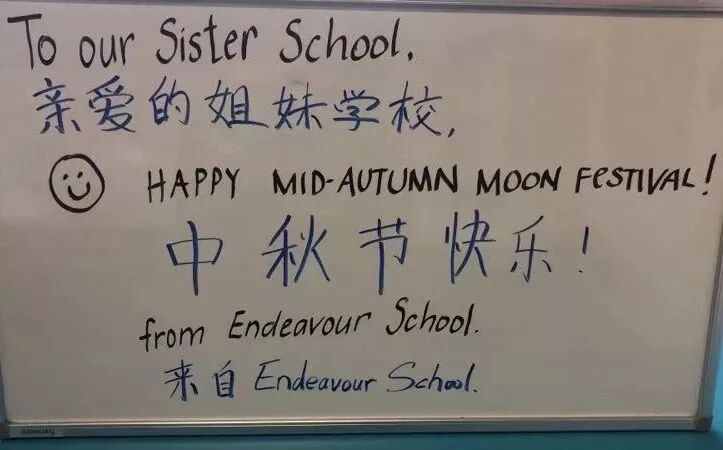 To our Sister School,
亲爱的姐妹学校,
HAPPY MID-AUTUMN MOON FESTIVAL!
中秋节快乐!
from Endeavour School.
来自 Endeavour School.